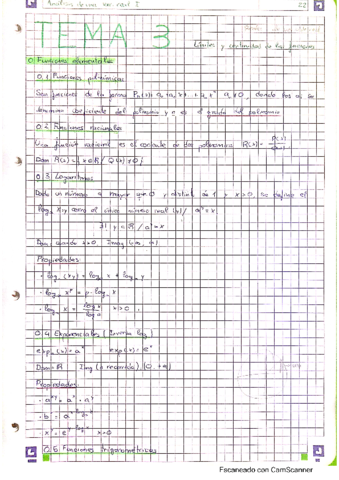 Análisis de una var. real I
22
TEMA 3
Límites y continuidad de las funciones
0. Funciones elementales
0.1 Funciones polinómicas
Son funciones de la forma Pₙ(x) = a₀ + a₁x + ... + aₙxⁿ aₙ ≠ 0, donde los aᵢ se
denominan coeficientes del polinomio y n es el grado del polinomio
0.2 Funciones racionales
Una función racional es el cociente de dos polinomios R(x) = P(x)/Q(x)
Dom R(x) = {x ∈ ℝ / Q(x) ≠ 0}
0.3 Logaritmos
Dado un número a mayor que 0 y distinto de 1 y x > 0, se define el
logₐ x = y como el único número real (y) / aʸ = x
∃! y ∈ ℝ / aʸ = x
Dom: cuando x > 0 Imag (-∞, ∞)
Propiedades:
· logₐ (xy) = logₐ x + logₐ y
· logₐ xᵖ = p · logₐ x
x > 0
0.4 Exponenciales (Inversa log)
expₐ(x) = aˣ exp(x) = eˣ
Dom = ℝ Img (o recorrido) (0, +∞)
Propiedades:
x > 0
0.5 Funciones trigonométricas
Escaneado con CamScanner